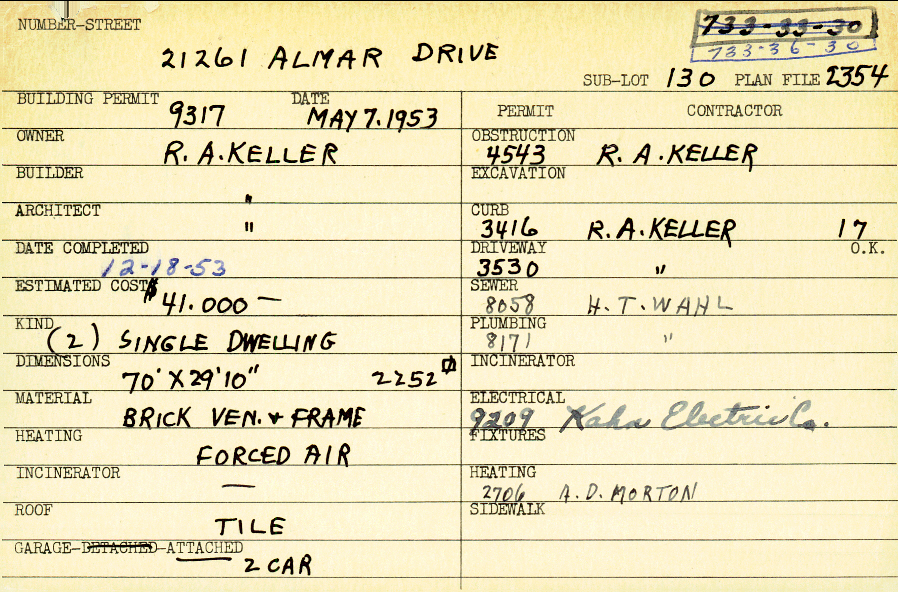 NUMBER-STREET
21261 ALMAR DRIVE
733-33-30
733-36-30
SUB-LOT 130 PLAN FILE 2354
BUILDING PERMIT 9317 DATE MAY 7. 1953
OWNER R. A. KELLER
BUILDER "
ARCHITECT "
DATE COMPLETED 12-18-53
ESTIMATED COST $41.000 —
KIND (2) SINGLE DWELLING
DIMENSIONS 70' X 29'10" 2252
MATERIAL BRICK VEN. & FRAME
HEATING FORCED AIR
INCINERATOR —
ROOF TILE
GARAGE-DETACHED-ATTACHED 2 CAR
PERMIT CONTRACTOR
OBSTRUCTION 4543 R. A. KELLER
EXCAVATION
CURB 3416 R. A. KELLER 17
DRIVEWAY 3530 " O.K.
SEWER 8058 H. T. WAHL
PLUMBING 8171 "
INCINERATOR
ELECTRICAL 9209 Kahn Electric Co.
FIXTURES
HEATING 2706 A. D. MORTON
SIDEWALK